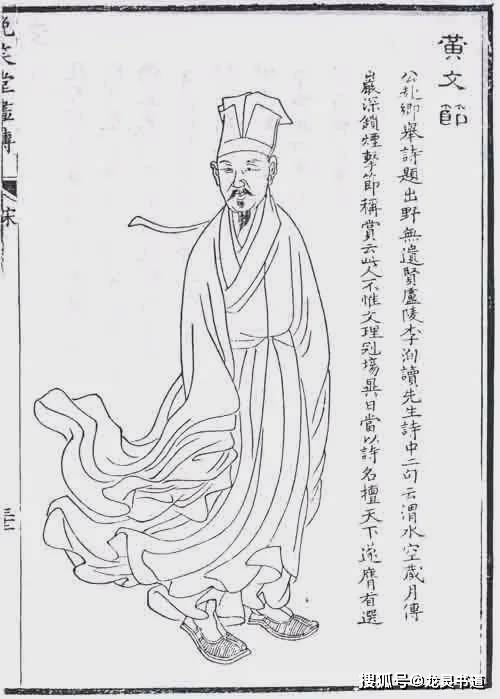 黃文節
公赴鄉舉詩題出野無遺賢廬陵李洵讀先生詩中二句云渭水空藏月傳
巖深鎖煙擊節稱賞云此人不惟文理冠場異日當以詩名擅天下遂膺首選
晚笑堂畫傳
搜狐号@龙灵书道